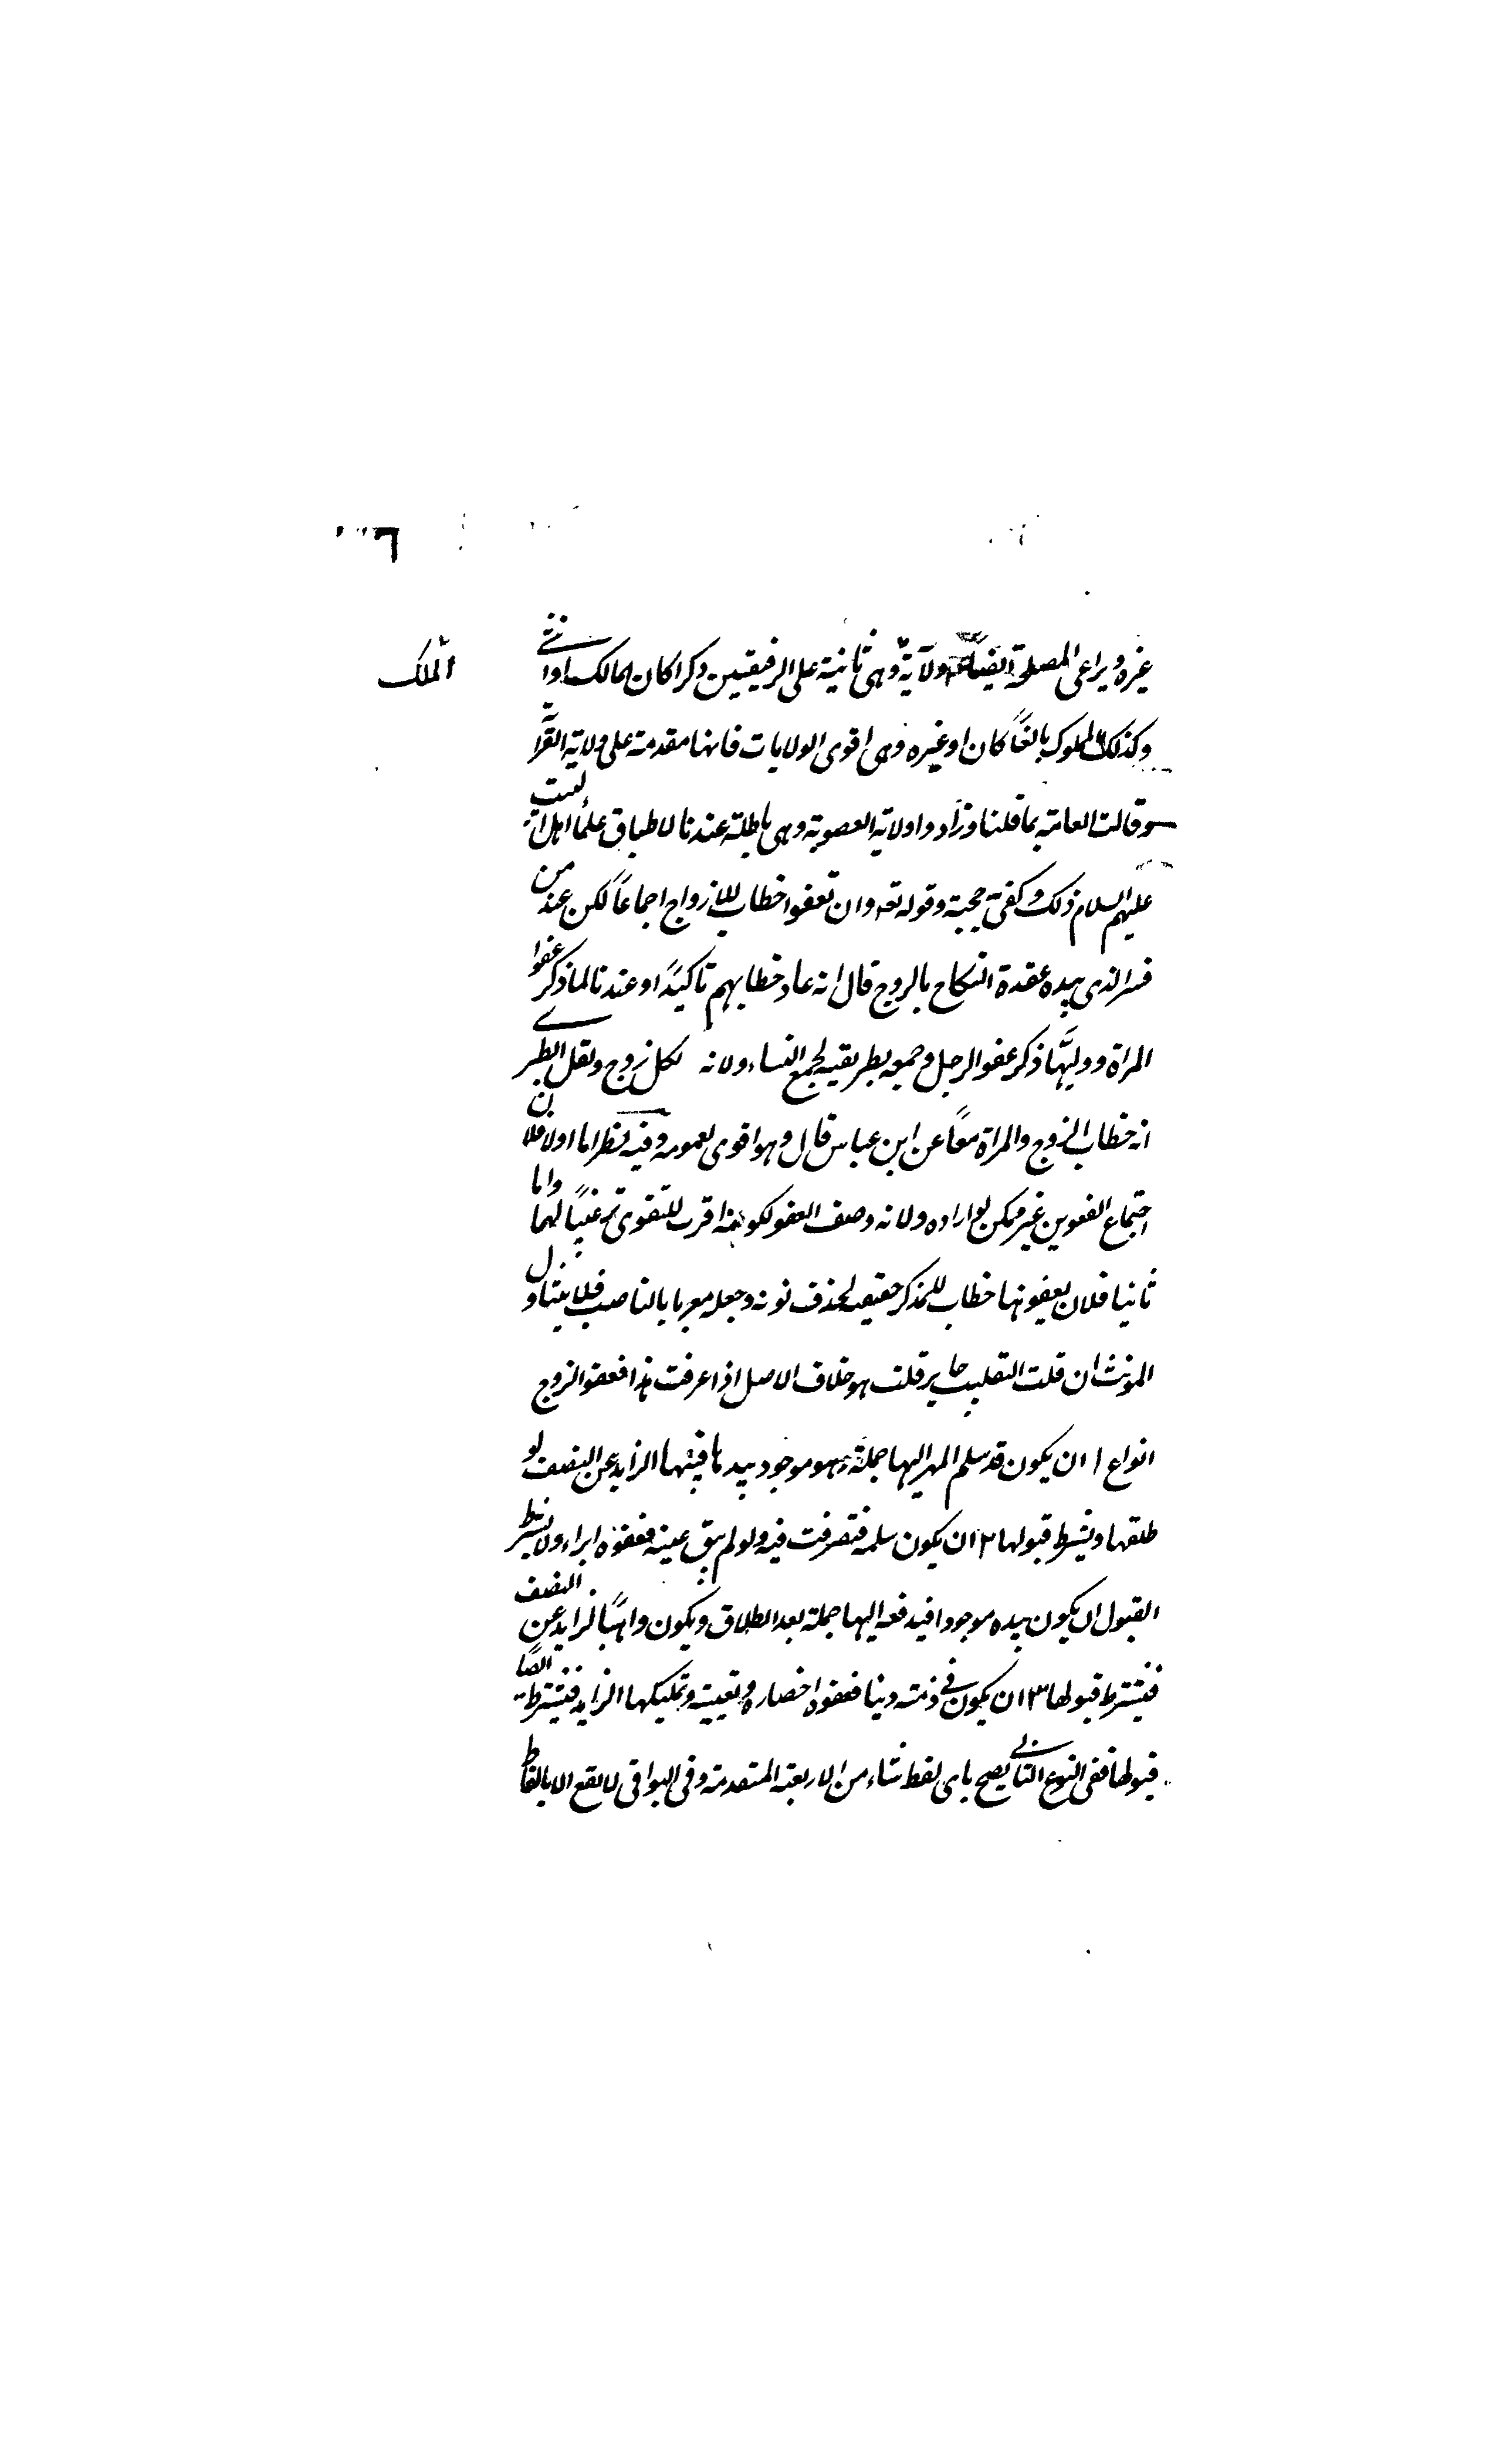 غيره ويراعى المصلحة ايضا ولاية وهى ثانية على الرقيقين ذكرا كان المالك او انثى
الملك
وكذلك المملوك بالغًا كان او غيره وهى اقوى الولايات فانها مقدمة على ولاية القرابة
وقالت العامة بما قلنا وزادوا ولاية العصوبة وهى باطلة عندنا لاطباق علماء اهل البيت
عليهم السلام ذلك وكفى حجية وقوله تعه وان تعفوا خطاب للازواج اجماعًا لكن عند من
فسر الذى بيده عقدة النكاح بالزوج قال انه عاد خطابهم تاكيدًا وعندنا لما ذكر عفو
المراة ووليها ذكر عفو الرجل وجمعه بطريقيه لجمع النساء ولانه لكل زوج ونقل الطبرسى
انه خطاب الزوج والمراة معًا عن ابن عباس قال وهو اقوى لعمومه وفيه نظر اما اولا فلان
اجتماع العفوين غير ممكن لو اراده ولانه وصف العفو لكونه اقرب للتقوى ترغيبًا لهما واما
ثانيا فلان يعفو نها خطاب للمذكر حقيقة لحذف نونه وجعله معربا بالناصب فلا يتناول
المونث ان قلت التغليب جايز قلت هو خلاف الاصل اذا عرفت هذا فعفو الزوج
انواع ١ ان يكون قد سلم المهر اليها جملة وهو موجود بيدها فيهبها الزايد عن النصف لو
طلقها ويشترط قبولها ٢ ان يكون سلمه فتصرفت فيه ولو لم يبق عينه فعفوه ابراء ولا يشترط
القبول ان يكون بيده موجودا فيدفعه اليها جملة بعد الطلاق ويكون واهبًا لزايد عن النصف
فيشترط قبولها ٣ ان يكون في ذمته دينا فعفوه احضاره وتعيينه وتمليكها الزايد فيشترط ايضًا
قبولها ففى النوع الثانى يصح باى لفظ شاء من الاربعة المتقدمة وفى البواقى لا يقع الا بالفاظ